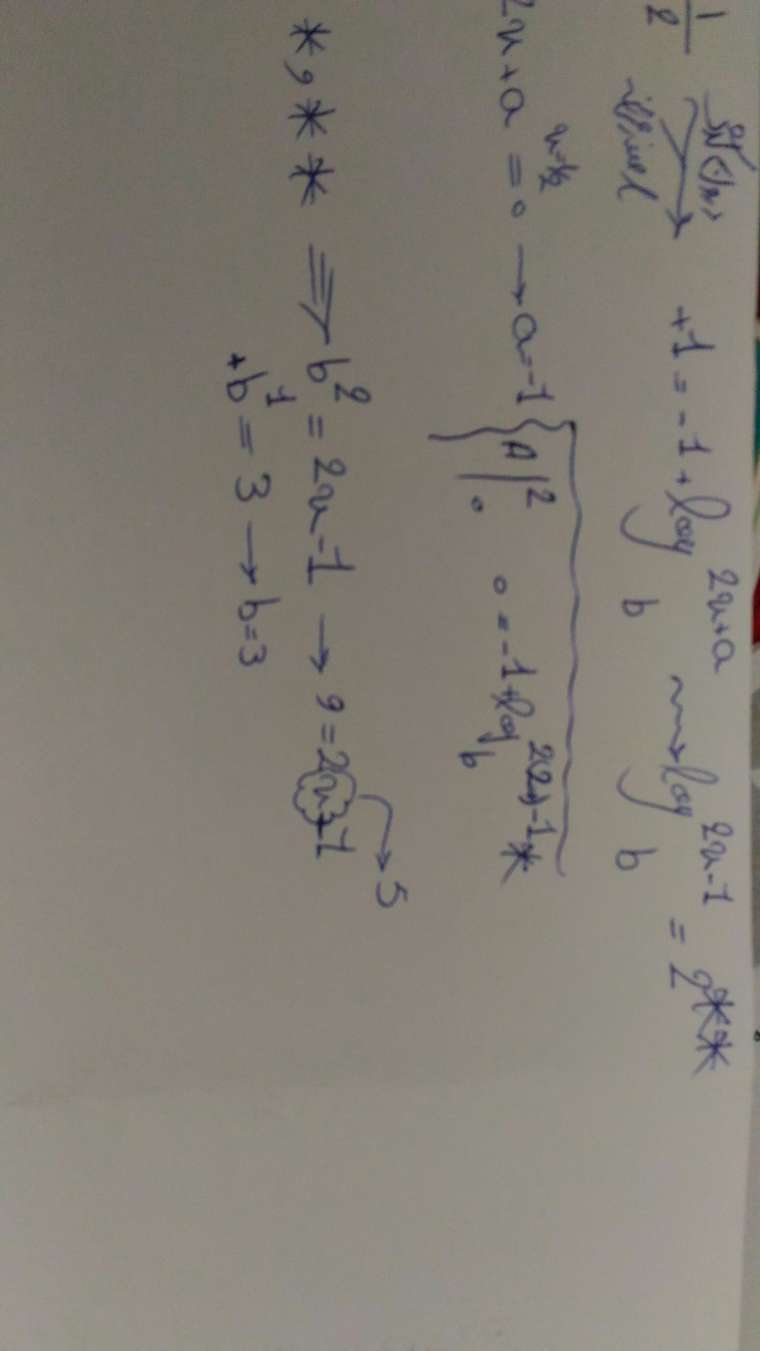 1/2 +1 = -1 + log_b^{2x+a} → log_b^{2x-1} = 2 **
2x + a = 0 x=1/2 → a = -1 } A |2 0 0 = -1 + log_b^{2(2)-1} *
*, ** ⇒ b^2 = 2x - 1 → 9 = 2x - 1 → 5
+b^1 = 3 → b = 3